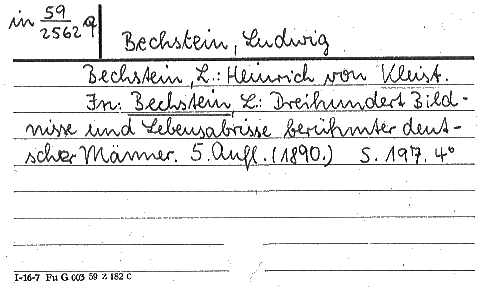 in 59/2562 q
Bechstein, Ludwig
Bechstein, L.: Heinrich von Kleist.
In: Bechstein, L: Dreihundert Bild-
nisse und Lebensabrisse berühmter deut-
scher Männer. 5. Aufl. (1890.) S. 197. 4°
I-16-7 Fu G 003 59 Z 182 C